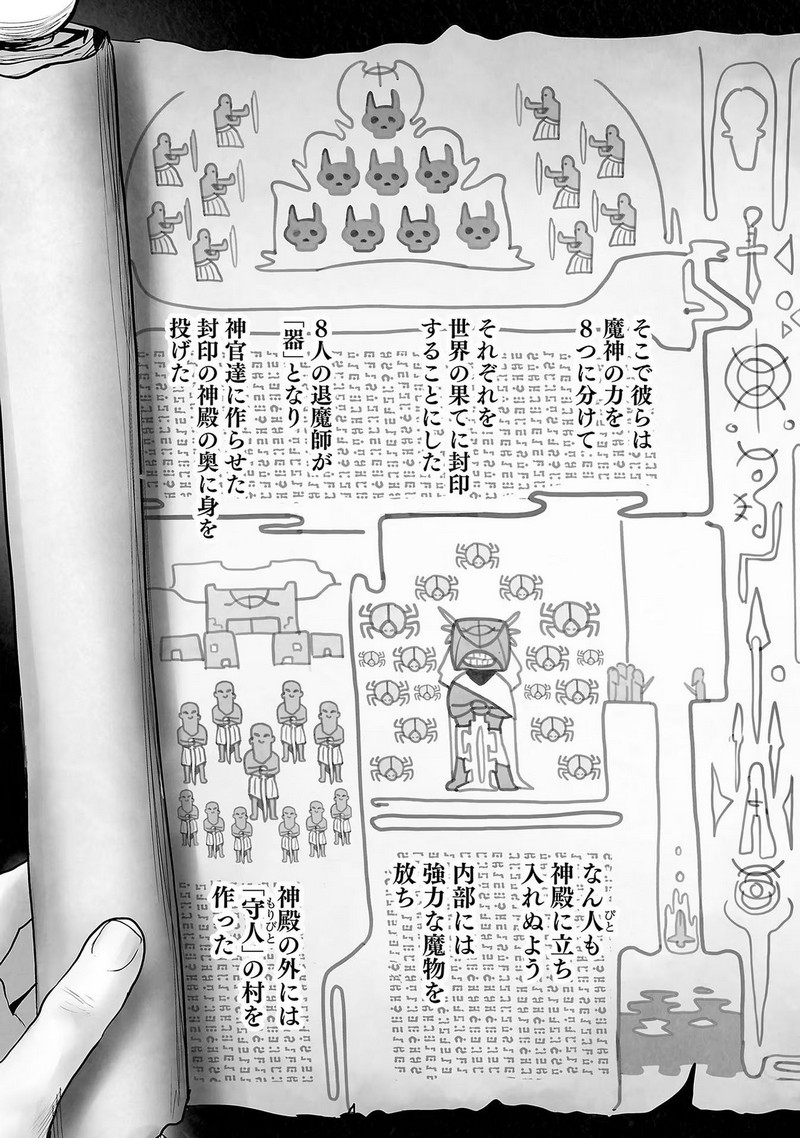 そこで彼らは
魔神の力を
8つに分けて
それぞれを
世界の果てに封印
することにした
8人の退魔師が
「器」となり
神官達に作らせた
封印の神殿の奥に身を
投げた
なん人も
びと
神殿に立ち
入れぬよう
内部には
強力な魔物を
放ち
神殿の外には
「守人」の村を
もりびと
作った